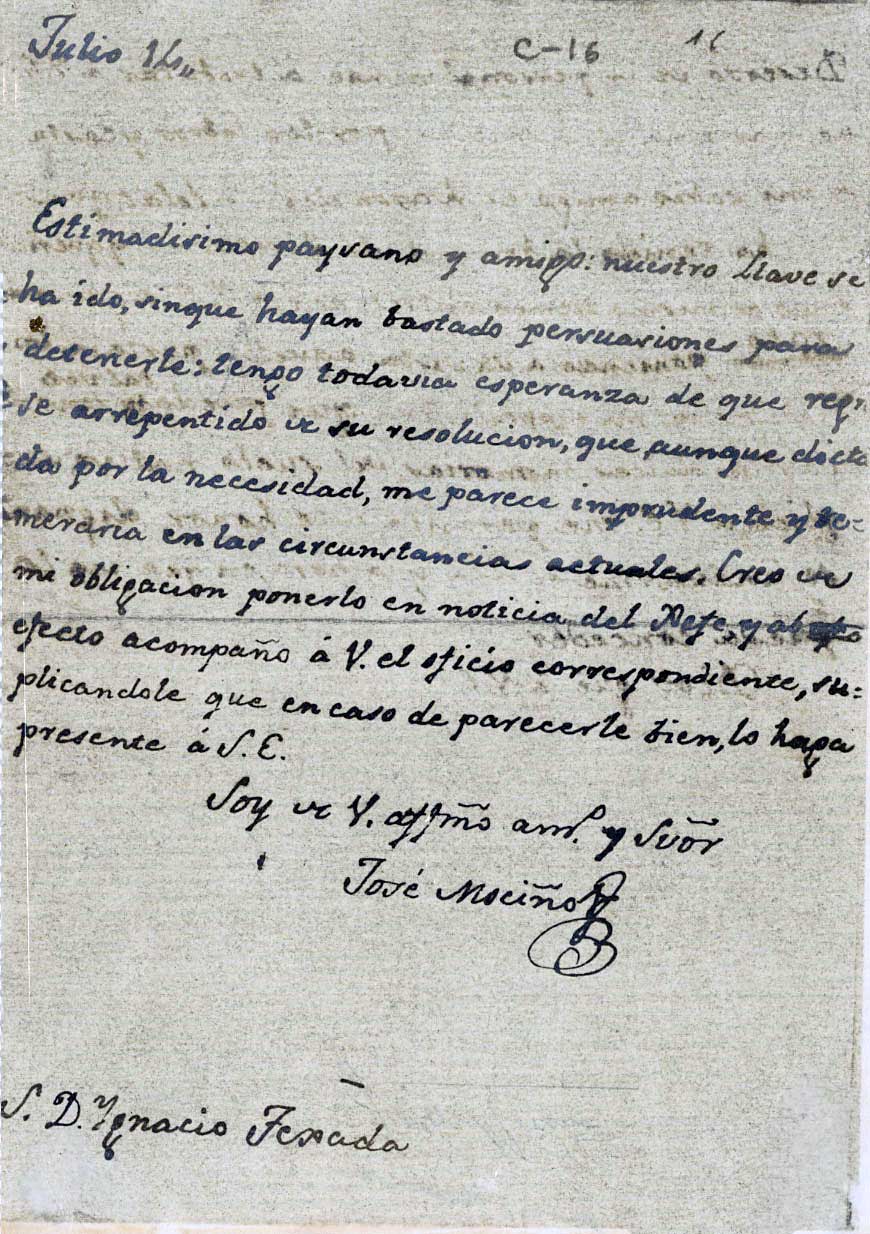 Julio 16,,
C-16
16
Estimadisimo paysano y amigo: nuestro Llave se
ha ido, sinque hayan bastado persuasiones para
detenerle: tengo todavia esperanza de que regre
se arrepentido de su resolucion, que aunque dicta
da por la necesidad, me parece imprudente y te=
meraria en las circunstancias actuales. Creo de
mi obligacion ponerlo en noticia del Xefe y al
efecto acompaño á V. el oficio correspondiente, su=
plicandole que en caso de parecerle bien, lo haga
presente á S. E.
Soy de V. affmo am.º y Svõr
José Mociño
S. D. Ygnacio Texada